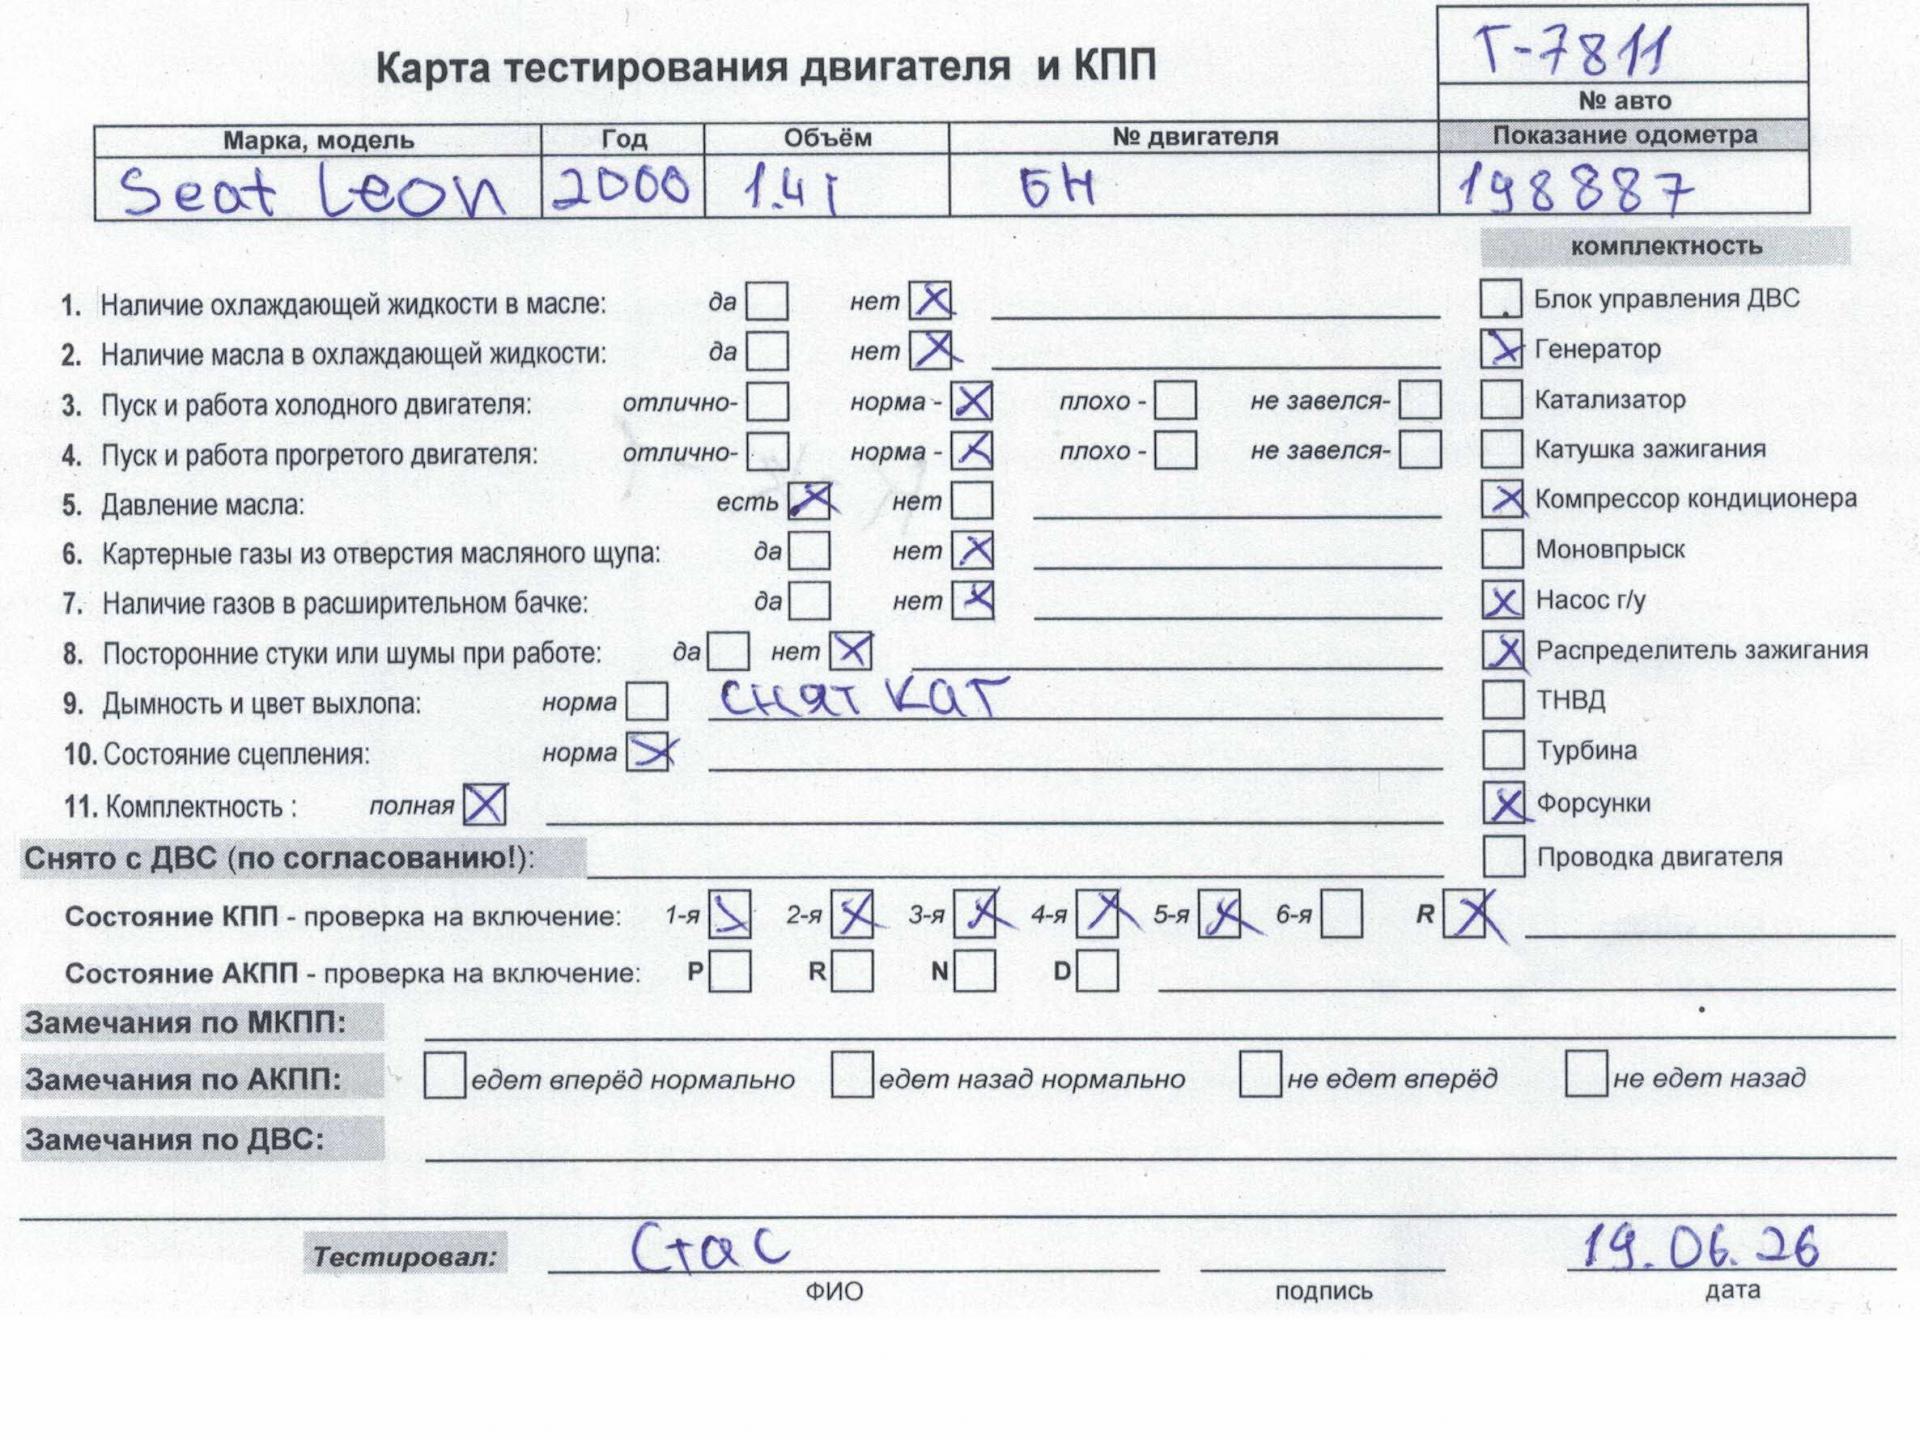 Т-7811
Карта тестирования двигателя и КПП
№ авто
Марка, модель Год Объём № двигателя Показание одометра
Seat Leon 2000 1.4i БН 198887
комплектность
1. Наличие охлаждающей жидкости в масле: да нет Х Блок управления ДВС
2. Наличие масла в охлаждающей жидкости: да нет Х Х Генератор
3. Пуск и работа холодного двигателя: отлично- норма - Х плохо - не завелся- Катализатор
4. Пуск и работа прогретого двигателя: отлично- норма - Х плохо - не завелся- Катушка зажигания
5. Давление масла: есть Х нет Х Компрессор кондиционера
6. Картерные газы из отверстия масляного щупа: да нет Х Моновпрыск
7. Наличие газов в расширительном бачке: да нет Х Х Насос г/у
8. Посторонние стуки или шумы при работе: да нет Х Х Распределитель зажигания
9. Дымность и цвет выхлопа: норма снят кат ТНВД
10. Состояние сцепления: норма Х Турбина
11. Комплектность : полная Х Х Форсунки
Снято с ДВС (по согласованию!): Проводка двигателя
Состояние КПП - проверка на включение: 1-я Х 2-я Х 3-я Х 4-я Х 5-я Х 6-я R Х
Состояние АКПП - проверка на включение: P R N D
Замечания по МКПП:
Замечания по АКПП: едет вперёд нормально едет назад нормально не едет вперёд не едет назад
Замечания по ДВС:
Тестировал: Стас 19.06.26
ФИО подпись дата